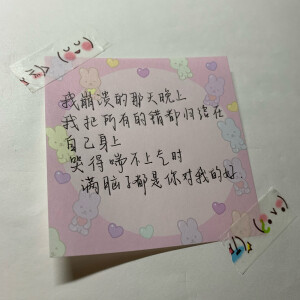 我崩溃的那天晚上
我把所有的错都归结在
自己身上
哭得喘不上气时
满脑子都是你对我的好.